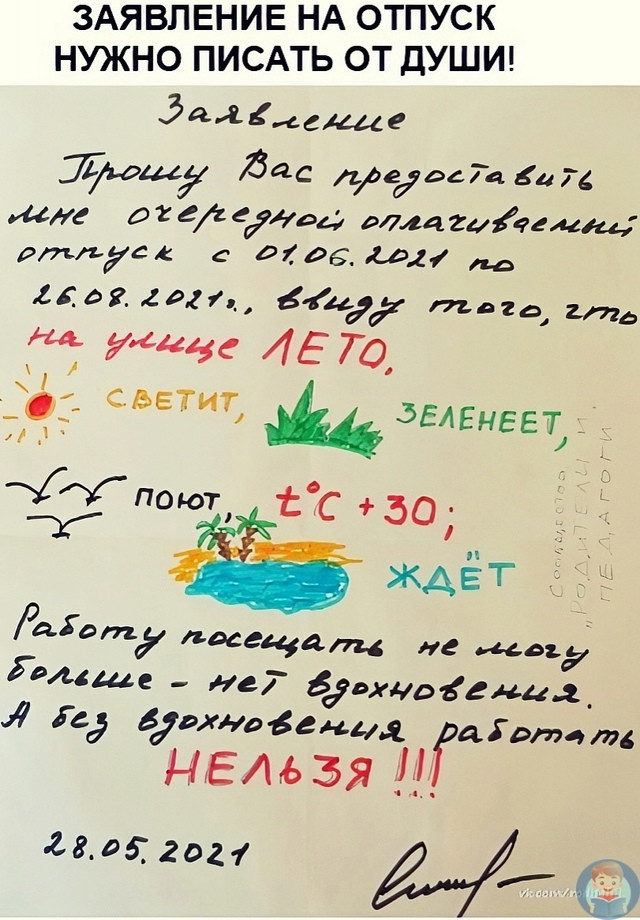 ЗАЯВЛЕНИЕ НА ОТПУСК
НУЖНО ПИСАТЬ ОТ ДУШИ!
Заявление
Прошу Вас предоставить
мне очередной оплачиваемый
отпуск с 01.06.2021 по
26.08.2021г., ввиду того, что
на улице ЛЕТО,
СВЕТИТ,
ЗЕЛЕНЕЕТ,
ПОЮТ, t°C +30;
ЖДЁТ
Работу посещать не могу
больше - нет вдохновения.
А без вдохновения работать
НЕЛЬЗЯ !!!
28.05.2021
Сообщество
"РОДИТЕЛИ И
ПЕДАГОГИ